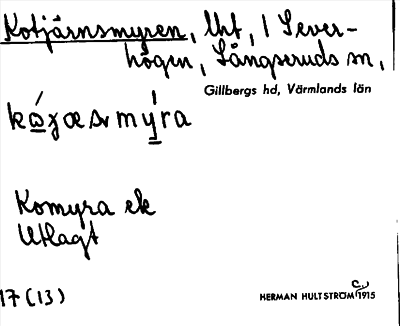 Kotjärnsmyren, lht, i Sever-
högen, Långseruds sn,
Gillbergs hd, Värmlands län
Komyra ek
Utlagt
17 (13)
HERMAN HULTSTRÖM C. 1915